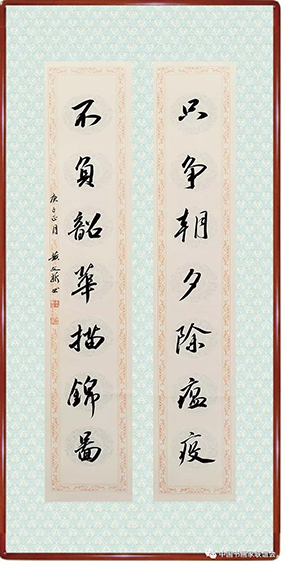 只争朝夕除瘟疫
不負韶華描錦圖
庚子正月
中国书画家联谊会